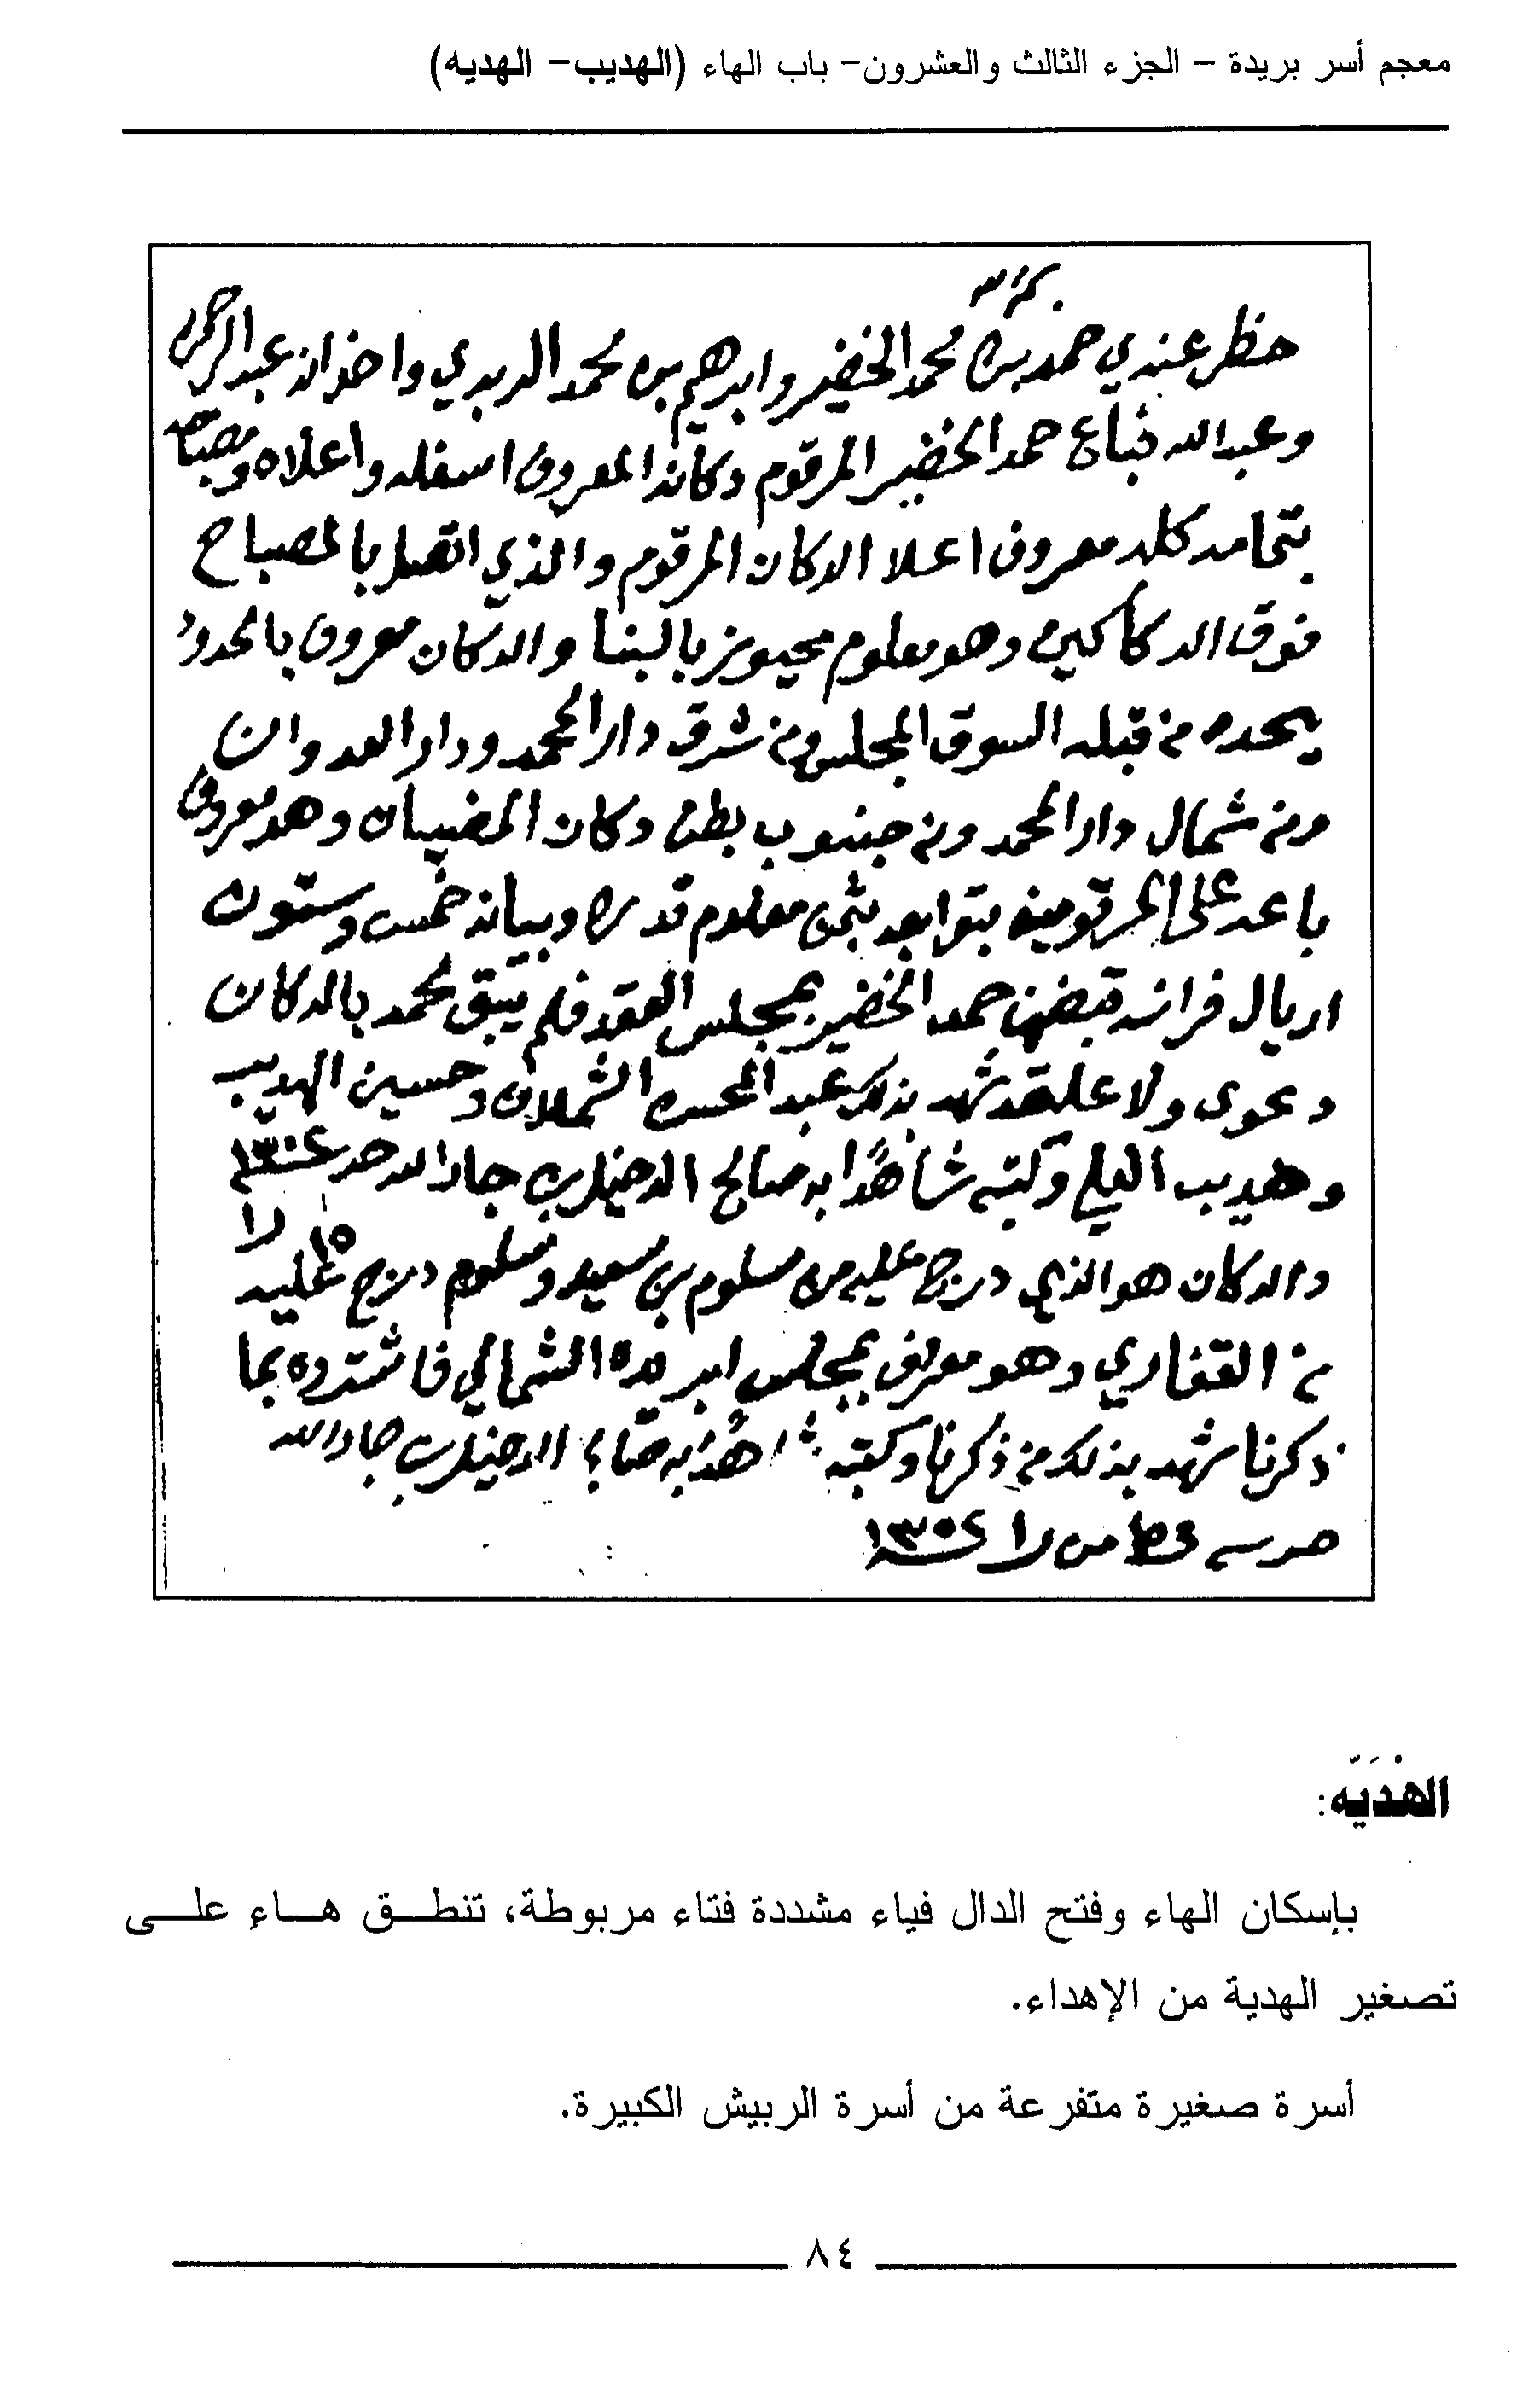 معجم أسر بريدة - الجزء الثالث والعشرون- باب الهاء (الهديب- الهديه)
حظر عندي حمد بن محمد الخضير وابرهيم بن محمد الربدي واخوانه عبدالرحمن
وعبدالله فباع حمد الخضير المرقوم دكانه المعروف اسفله واعلاه
كله معروف اعلا الدكان المرقوم والذي اتصل بالمصباح
فوق الدكاكين وهو معلوم محيوز بالبنا والدكان معروف بالحدود
يحده من قبله السوق المجلس ومن شرق دار المحمد ودار العدوان
ومن شمال دار المحمد ومن جنوب بطن دكان وهو معروف
باعه على المرقومين بتوابعه بثمن معلوم قدره وبيانه خمس وستون
اريال فرانسه قبضهن حمد الخضير بمجلس العقد فلم يتبق لحمد بالدكان
دعوى ولا علقه شهد بذلك عبد المحسن الشملان وحسين الهديب
وهديب العلي وكتبه شاهدًا به صالح الدخيل بن جارالله حرر ١٣٠٤
١٥ را
والدكان هو الذي درج عليه من سلوم بن سعيد وسلوم درج عليه
من القفاري وهو معروف بمجلس ابريده الشمالي فاشتروه بما
ذكرنا شهد بذلك من ذكرنا وكتبه شاهد به صالح الدخيل بن جارالله
١٥ من را ١٣٠٤
الهْدَيّه:
بإسكان الهاء وفتح الدال فياء مشددة فتاء مربوطة، تنطق هاء على
تصغير الهدية من الإهداء.
أسرة صغيرة متفرعة من أسرة الربيش الكبيرة.
٨٤